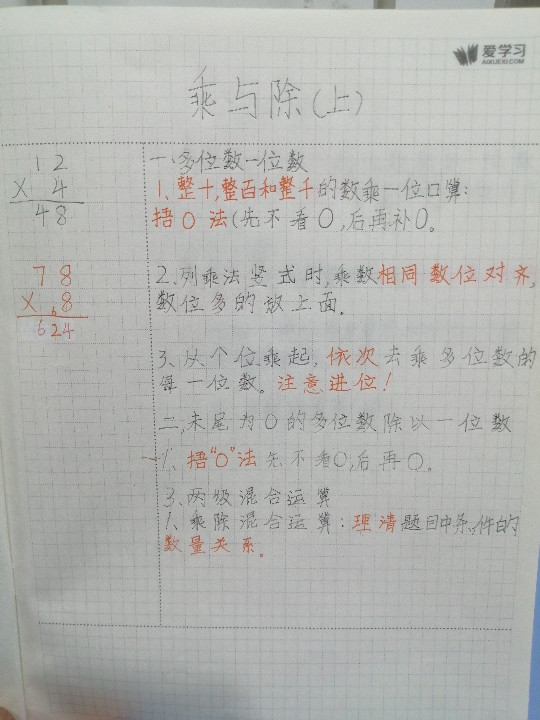 爱学习
AIXUEXI.COM
乘与除(上)
12
× 4
48
78
× 68
624
一、多位数一位数
1、整十,整百和整千的数乘一位口算:
捂0法(先不看0,后再补0。
2.列乘法竖式时,乘数相同数位对齐,
数位多的放上面.
3、从个位乘起,依次去乘多位数的
每一位数。注意进位!
二,末尾为0的多位数除以一位数
1、捂"0"法先不看0,后再0。
3、两级混合运算
1、乘除混合运算:理清题目中条件的
数量关系。